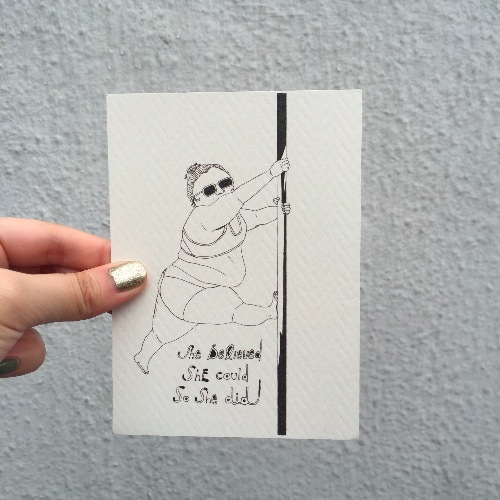 She believed
ShE could
So She did!